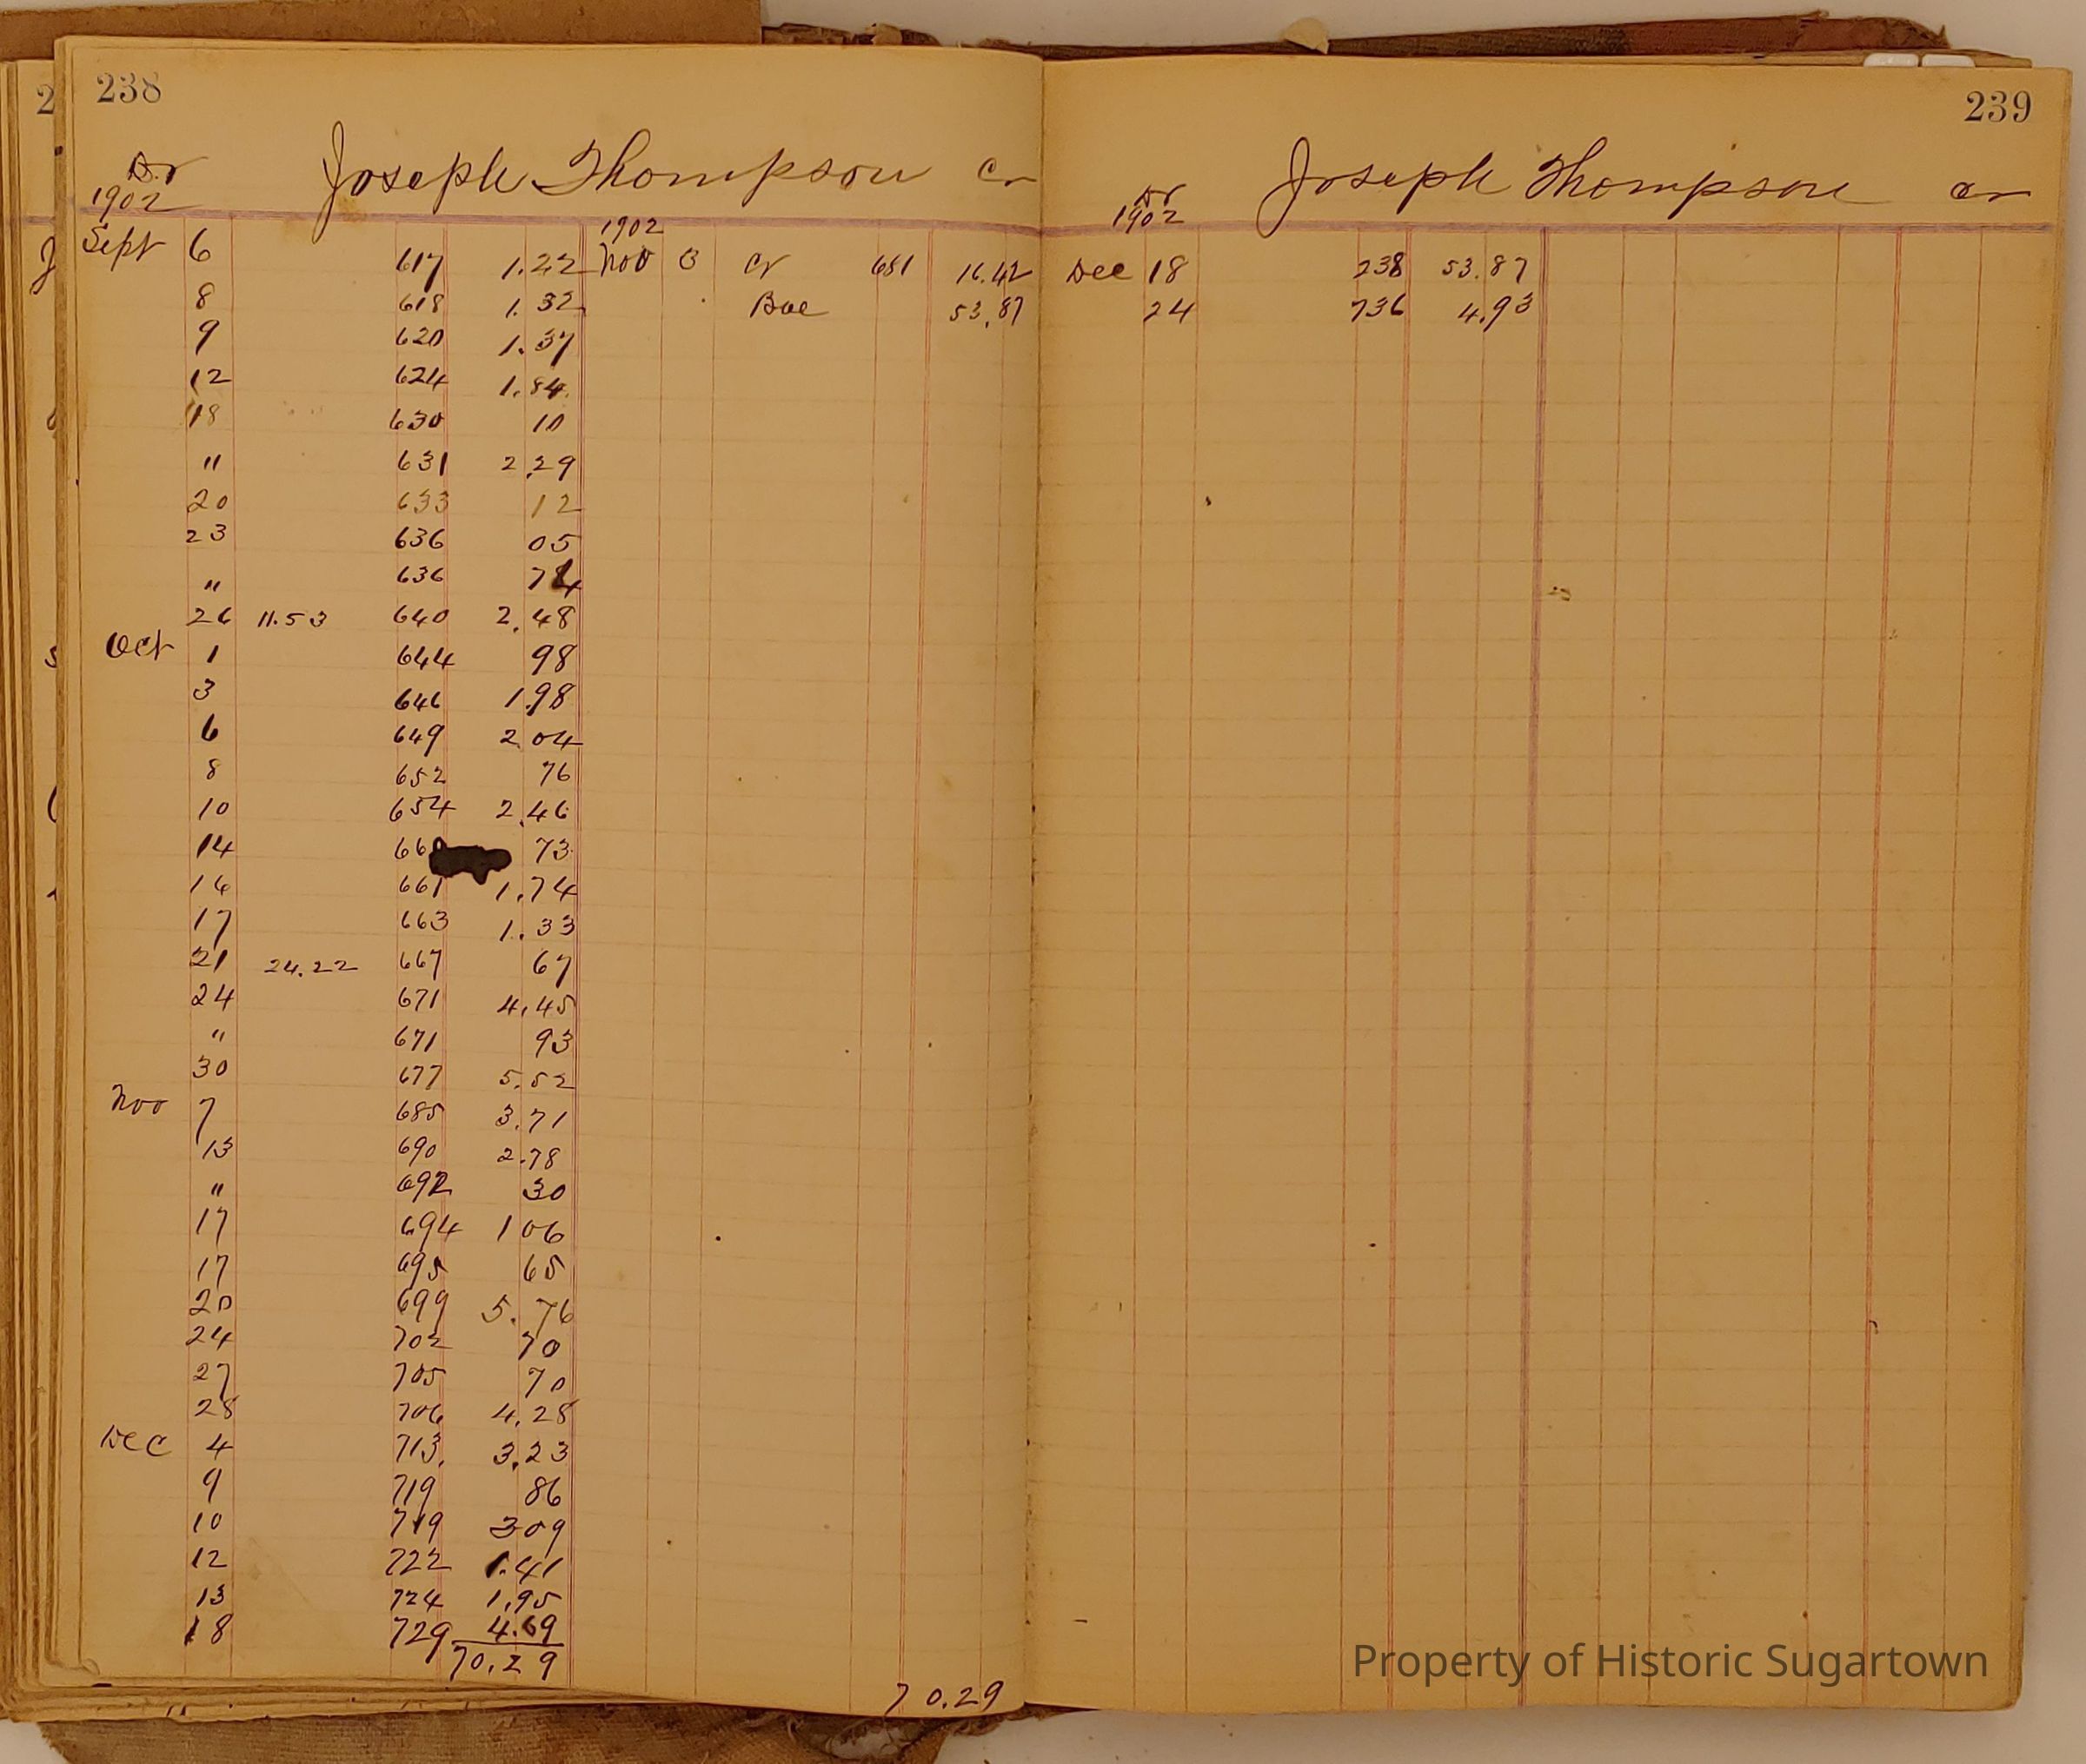 238
Dr Joseph Thompson Cr
1902
1902
Sept 6 617 1.22 Nov 3 Cr 681 16.42
8 618 1.32 Bae 53.87
9 620 1.37
12 624 1.84
18 630 10
" 631 2.29
20 633 12
23 636 05
" 636 74
26 11.53 640 2.48
Oct 1 644 98
3 646 1.98
6 649 2 04
8 652 76
10 654 2.46
14 73
16 661 1.74
17 663 1.33
21 24.22 667 67
24 671 4.45
" 671 93
30 677 5.52
Nov 7 685 3.71
13 690 2.78
" 692 30
17 694 1 06
17 695 65
20 699 5.76
24 702 70
27 705 70
28 706 4.28
Dec 4 713. 3.23
9 719 86
10 719 3 09
12 722 1.41
13 724 1.95
18 729 4.69
70.29
70.29
239
Dr Joseph Thompson Cr
1902
Dec 18 238 53.87
24 736 4.93
Property of Historic Sugartown